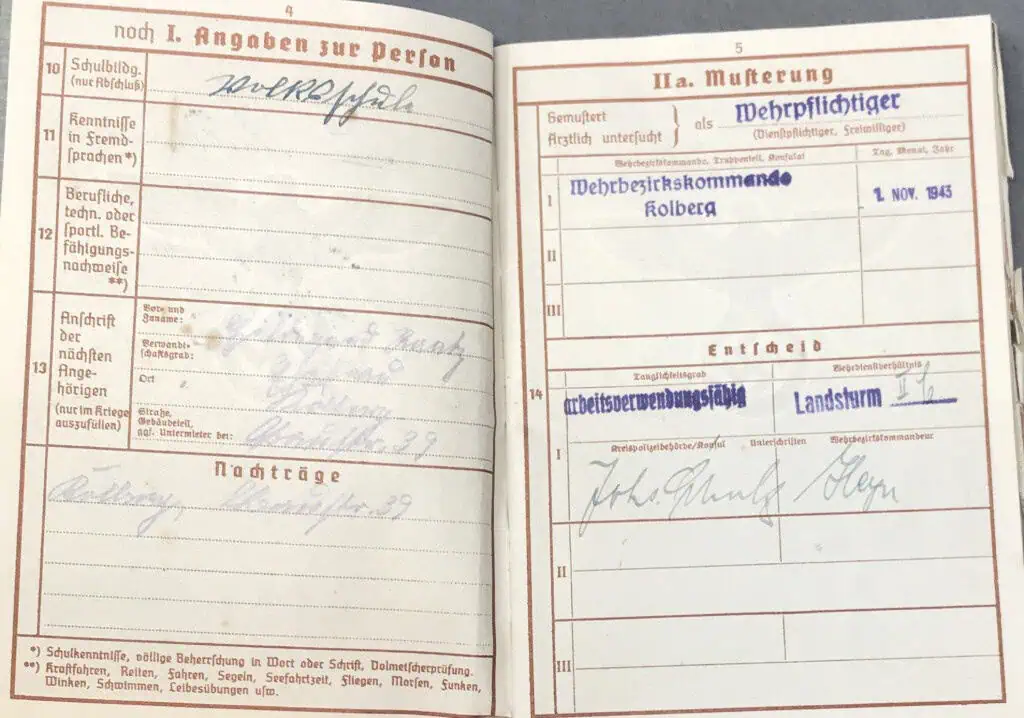 4
noch I. Angaben zur Person
10 Schulbildg.
(nur Abschluß)
Volksschule
11 Kenntnisse
in Fremd-
sprachen*)
12 Berufliche,
techn. oder
sportl. Be-
fähigungs-
nachweise
**)
13 Anschrift
der
nächsten
Ange-
hörigen
(nur im Kriege
auszufüllen)
Vor- und
Zuname:
Verwandt-
schaftsgrad:
Ehefrau
Ort
Kolberg
Straße,
Gebäudeteil,
ggf. Untermieter bei:
39
Nachträge
Kolberg, 39
*) Schulkenntnisse, völlige Beherrschung in Wort oder Schrift, Dolmetscherprüfung.
**) Kraftfahren, Reiten, Fahren, Segeln, Seefahrtzeit, Fliegen, Morsen, Funken,
Winken, Schwimmen, Leibesübungen usw.
5
IIa. Musterung
Gemustert
Ärztlich untersucht } als Wehrpflichtiger
(Dienstpflichtiger, Freiwilliger)
Wehrbezirkskommando, Truppenteil, Konsulat
Tag, Monat, Jahr
I Wehrbezirkskommando
Kolberg
1. NOV. 1943
II
III
Entscheid
14
Tauglichkeitsgrad
Wehrdienstverhältnis
arbeitsverwendungsfähig
Landsturm II
I
Kreispolizeibehörde/Konsul Unterschriften Wehrbezirkskommandeur
Johs. Schulz
II
III